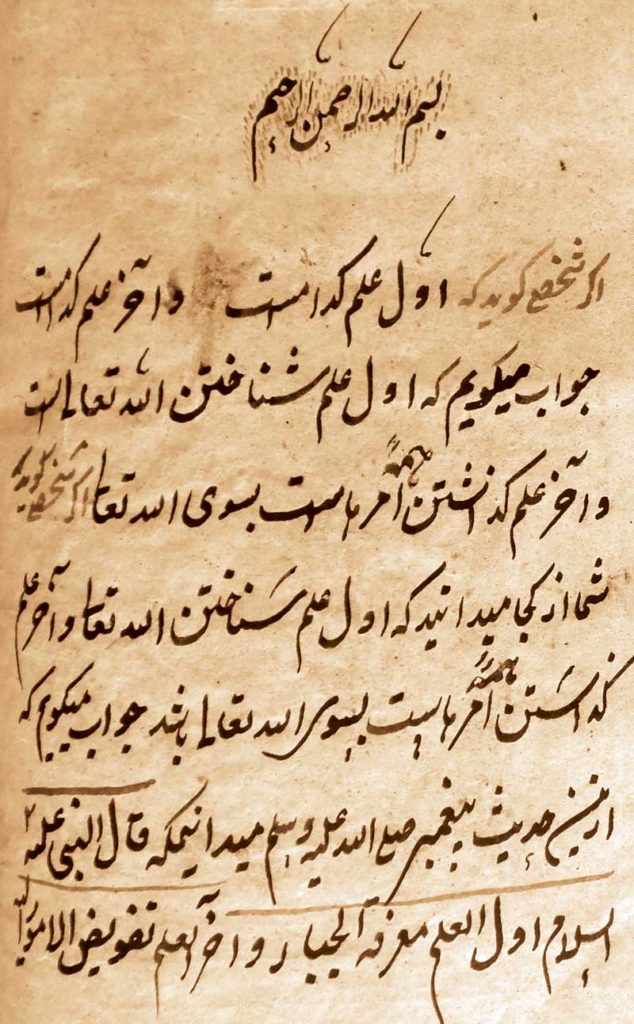 بسم الله الرحمن الرحیم
اکر شخصی کوید که اول علم کدامست و آخر علم کدامست
جواب میکویم که اول علم شناختن الله تعالی است
و آخر علم کذاشتن همه امرهاست بسوی الله تعالی اکر شخصی کوید که
شما از کجا میدانید که اول علم شناختن الله تعالی و آخر علم
کذاشتن همه امرهاست بسوی الله تعالی باشد جواب میکویم که
ازین حدیث پیغمبر صلی الله علیه وسلم میدانیمکه قال النبی علیه
السلام اول العلم معرفة الجبار و آخر العلم تفویض الامور الیه